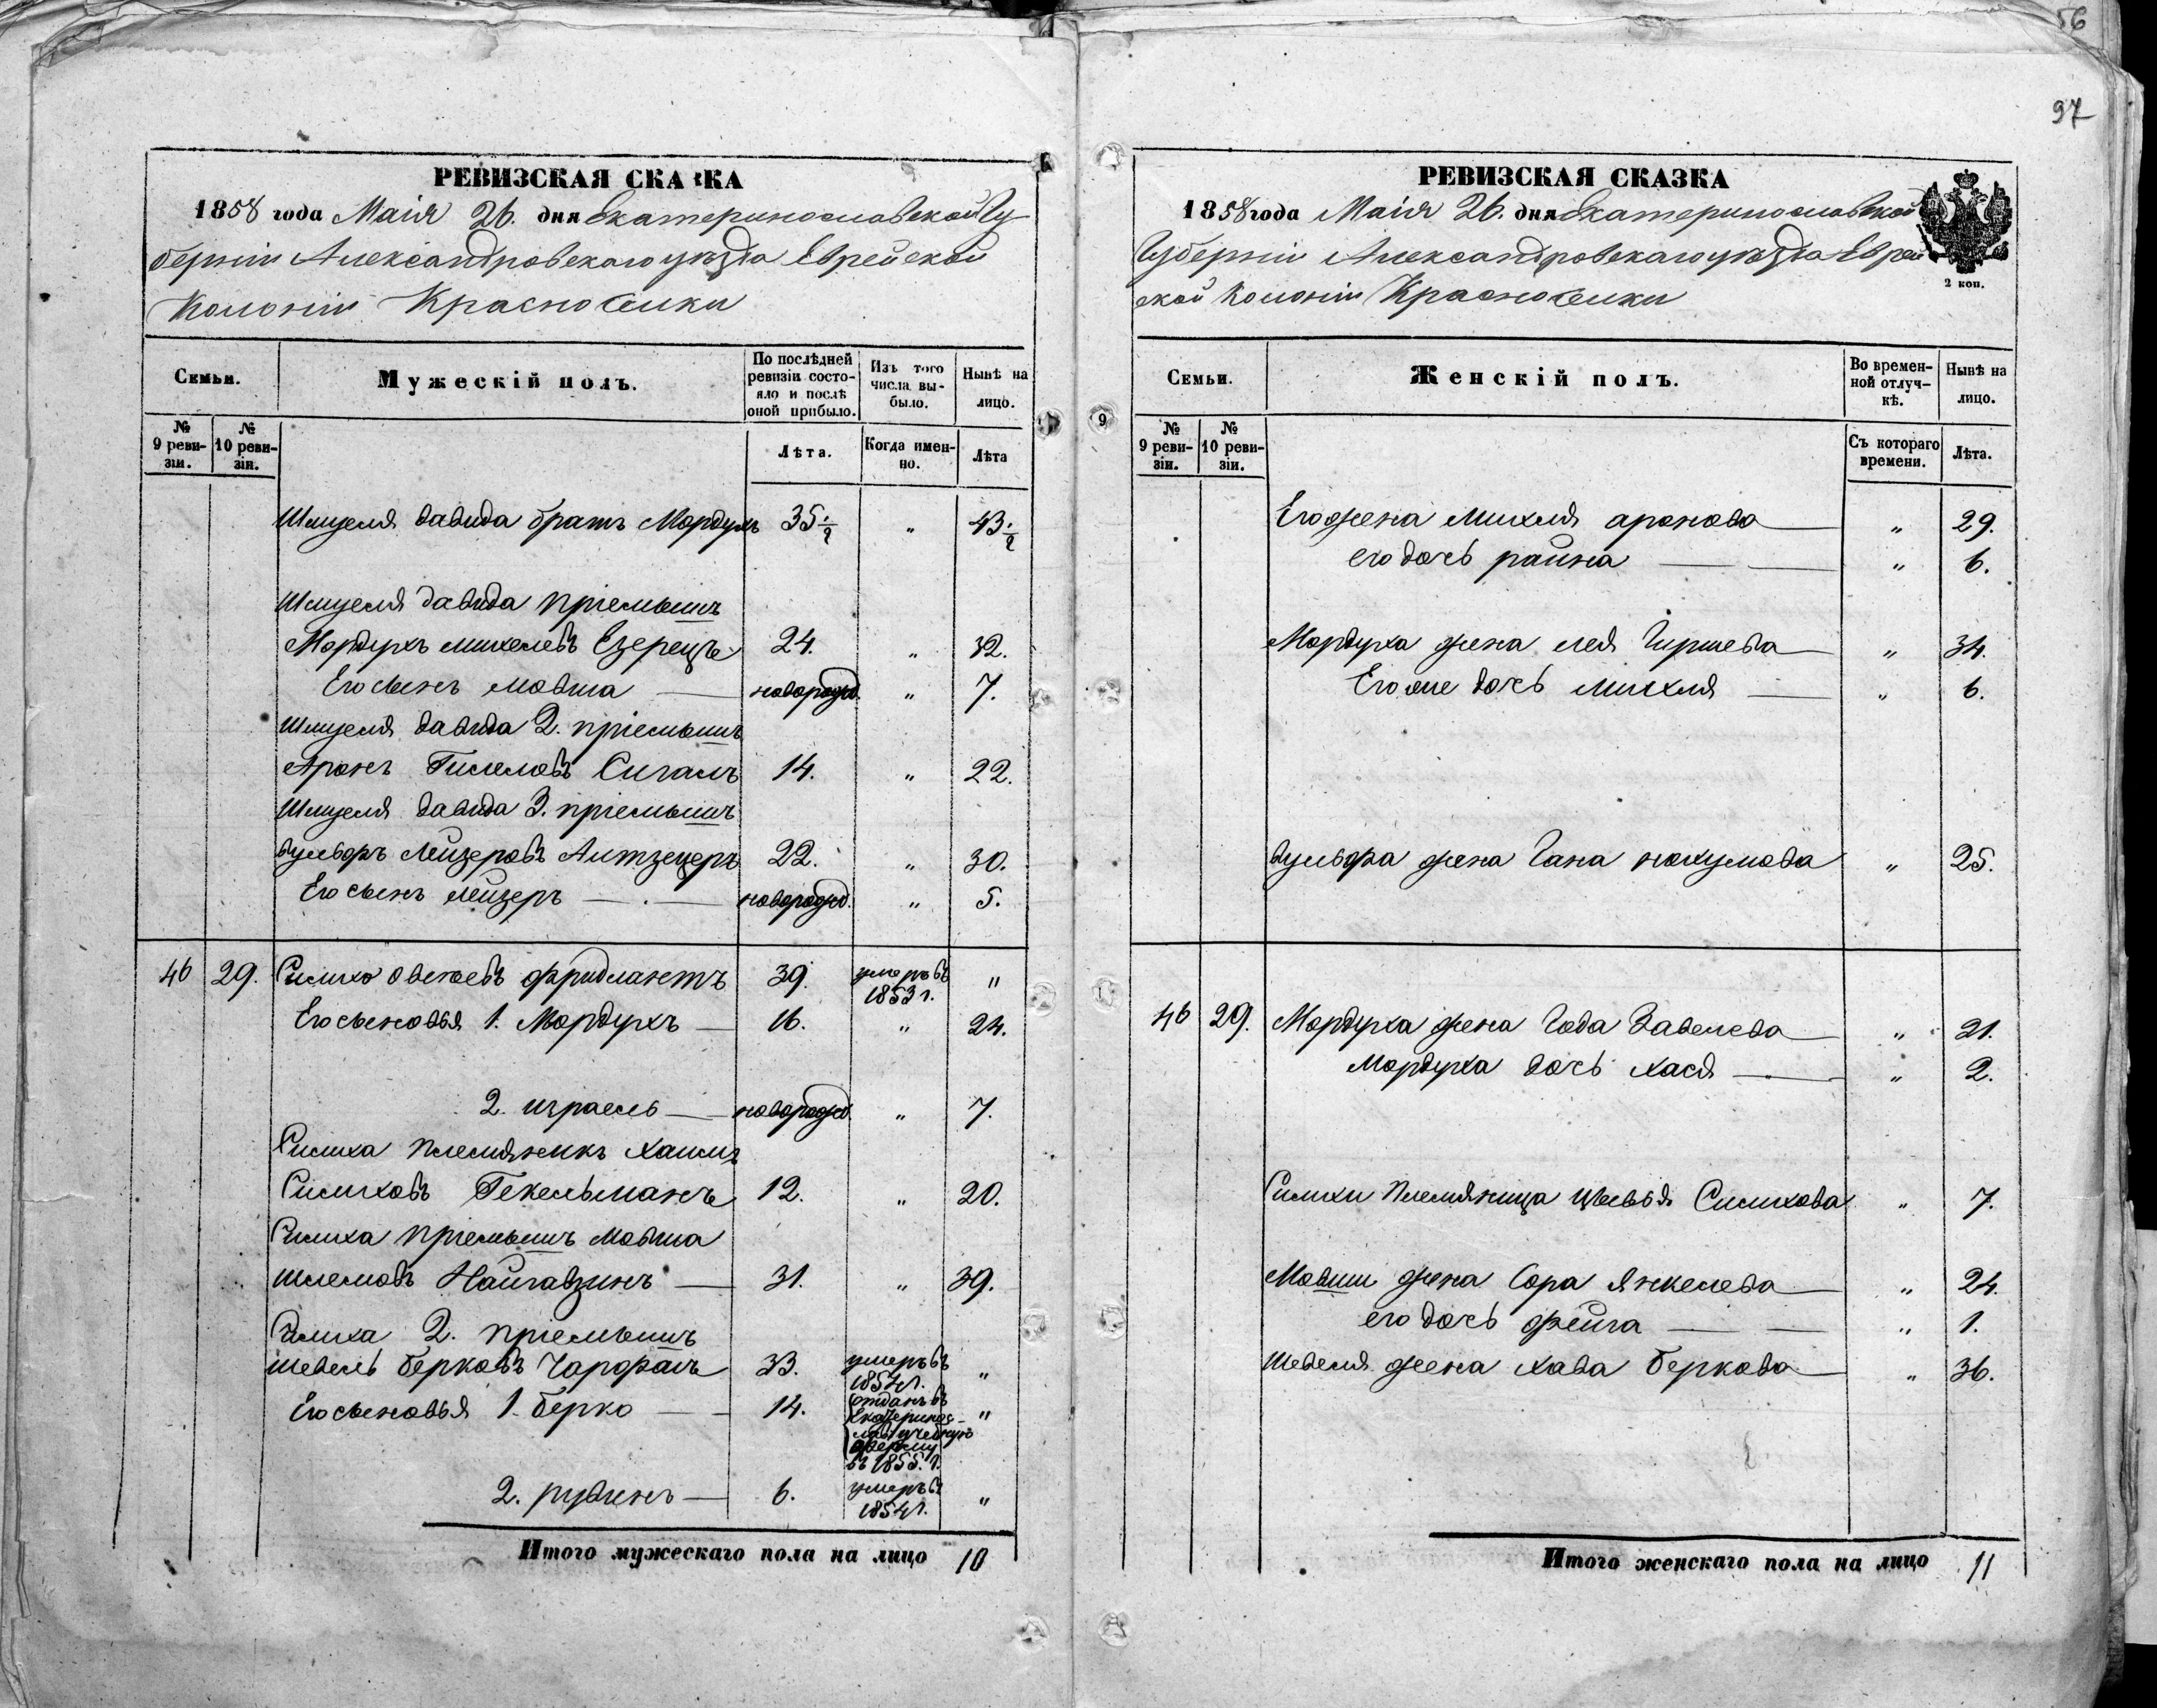 56
97
РЕВИЗСКАЯ СКАЗКА
1858 года Маія 26. дня Екатеринославской Гу-
берніи Александровскаго уѣзда Еврейской
Колоніи Красноселки
Семьи.
Мужескій полъ.
По послѣдней ревизіи состо-яло и послѣ оной прибыло.
Изъ того числа вы-было.
Нынѣ на лицо.
№ 9 реви-зіи.
№ 10 реви-зіи.
Лѣта.
Когда имен-но.
Лѣта
Шмуеля давида братъ Мордухъ 35 1/2 " 43 1/2
Шмуеля давида пріемышъ
Мордухъ михелевъ Езерецъ 24. " 32.
Его сынъ мовша — новорожд. " 7.
Шмуеля давида 2. пріемышъ
Аронъ Гисилевъ Сигалъ 14. " 22.
Шмуеля давида 3. пріемышъ
вульфъ Лейзеровъ 22. " 30.
Его сынъ лейзеръ — новорожд. " 5.
46 29. Симхо Овсеевъ фридлантъ 39. умеръ въ 1853 г. "
Его сыновья 1. Мордухъ — 16. " 24.
2. израель — новорожд. " 7.
Симха племянникъ хаимъ
Симховъ Гекельманъ 12. " 20.
Симха пріемышъ мовша
шлемовъ Найгавзинъ — 31. " 39.
Симха 2. пріемышъ
шевель берковъ 33. умеръ въ 1854 г. "
Его сыновья 1. берко — 14. отданъ въ Екатеринос-лав. учебную ферму въ 1855. г. "
2. рувинъ — 6. умеръ въ 1854 г. "
Итого мужескаго пола на лицо 10
РЕВИЗСКАЯ СКАЗКА
1858 года Маія 26. дня Екатеринославской
Губерніи Александровскаго уѣзда Еврей-
ской Колоніи Красноселки
2 коп.
9
Семьи.
Женскій полъ.
Во времен-ной отлуч-кѣ.
Нынѣ на лицо.
№ 9 реви-зіи.
№ 10 реви-зіи.
Съ котораго времени.
Лѣта.
Его жена михля аронова — " 29.
его дочь райна — " 6.
Мордуха жена лея Гиршева — " 34.
Его же дочь михля — " 6.
вульфа жена Гана нохумова " 25.
46 29. Мордуха жена Года Завелева — " 21.
Мордуха дочь хася — " 2.
Симхи племяница цывья Симхова " 7.
Мовши жена Сора янкелева — " 24.
его дочь фейга — " 1.
шевеля жена хава беркова — " 36.
Итого женскаго пола на лицо 11